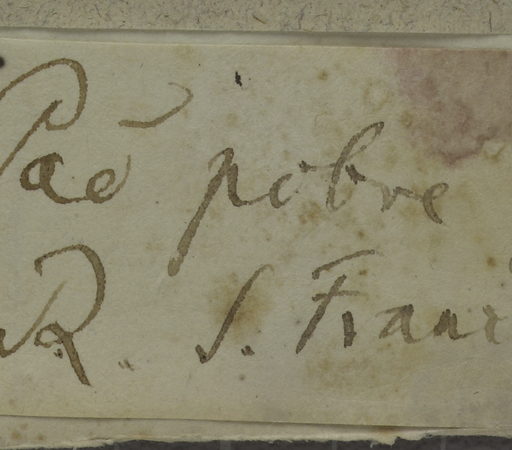 Pao pobre
R. S. Franc